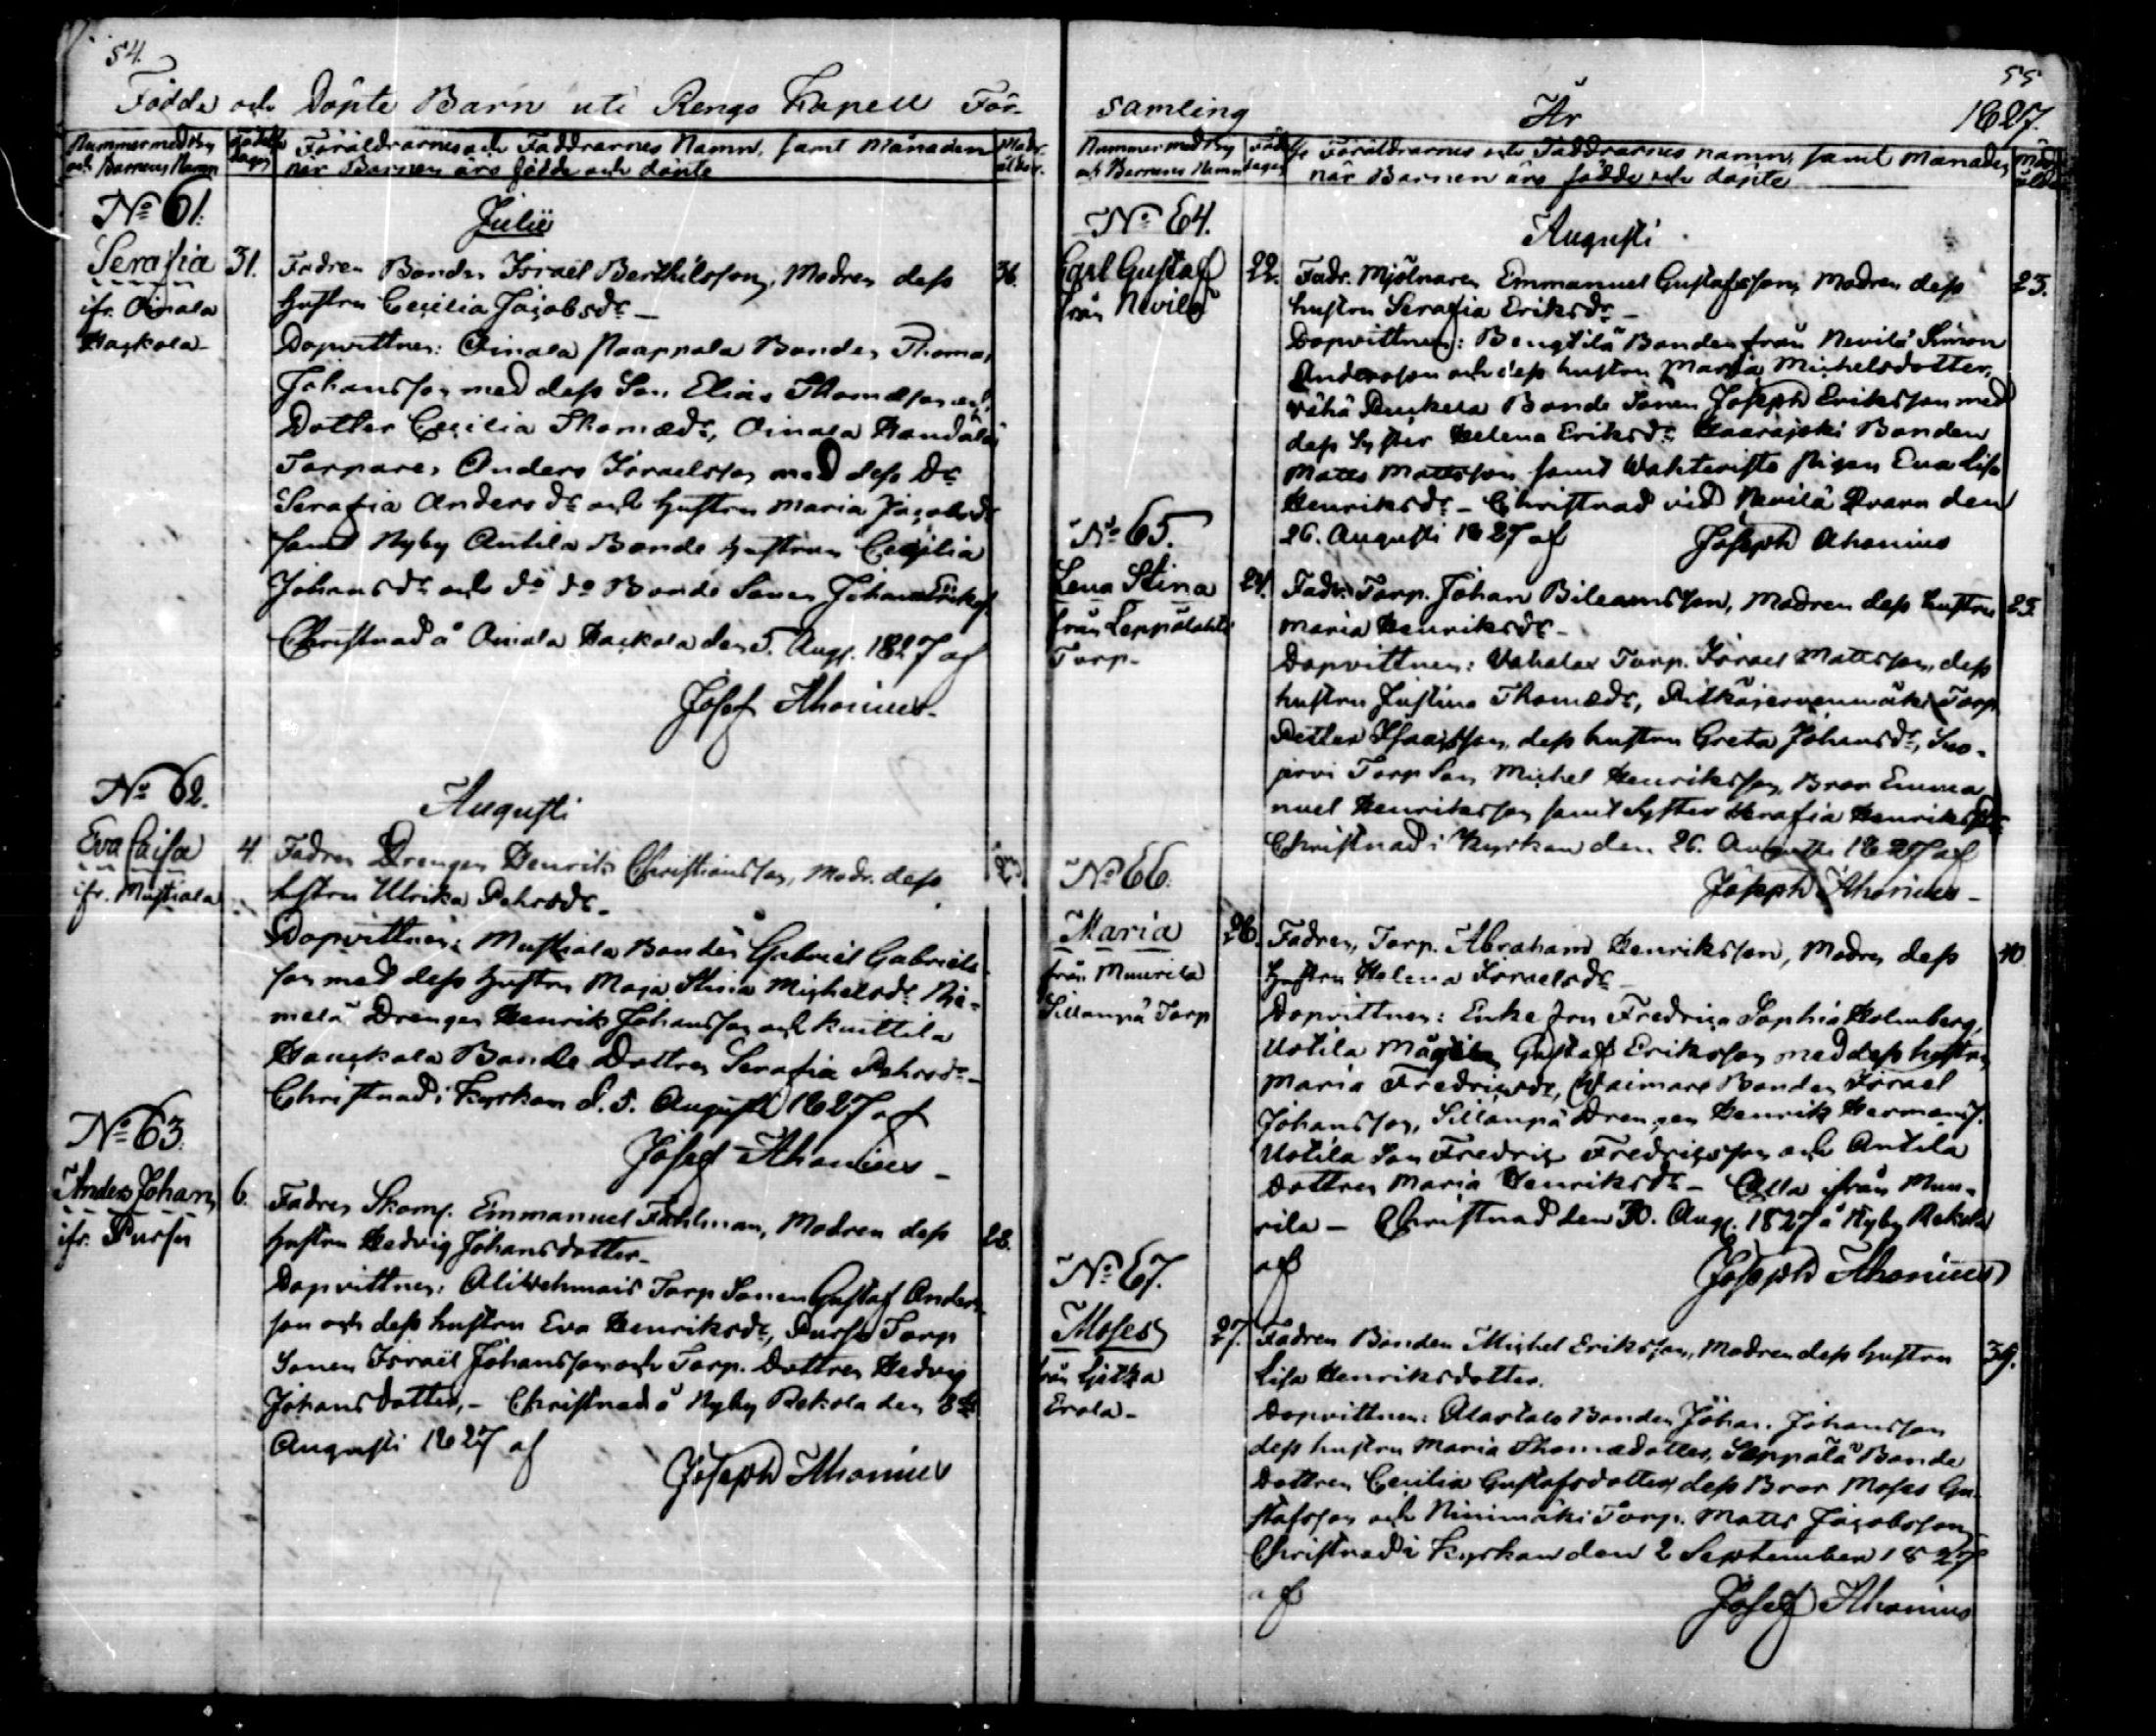 54.
Födde och Döpte Barn uti Rengo Kapell För-
Nummer med By och Barnens Namn
Födelse dagen
Föräldrarnes och Faddrarnes Namn, samt Månaden
när Barnen äro födde och döpte
Modr. ålder.
No 61.
Julii
Serafia
ifr. Oinala
Hackola
31.
Fadren Bonden Israël Berthilsson, Modren dess
36.
hustru Cecilia Jacobsdr _
Dopvittnen: Oinala Paappala Bonden Thomas
Johansson med dess Son Elias Thomæson och
Dotter Cecilia Thomædr, Oinala
Torparen Anders Israelsson med dess Dr
Serafia Andersdr och hustru Maria Jacobsdr
samt Nyby Antila Bonde hustrun Cecilia
Johansdr och do do Bonde Sonen Johan Eriksf.
Christnad å Oinala Hackola den 5. Aug. 1827 af
Josef Ahonius.
No 62.
Augusti
Eva Caisa
ifr. Mustiala
4.
Fadren Drengen Henrik Christiansson, Modr. dess
hustru Ulrika Pehrsdr.
Dopvittnen: Mustiala Bonden Gabriel Gabriels
son med dess hustru Maja Stina Michelsdr Nie-
melä Drengen Henrik Johansson och Knittila
Hauckala Bonde Dottren Serafia Pehrsdr _
Christnad i Kyrkan d. 5. Augusti 1827 af
Josef Ahonius _
No 63.
Anders Johan
ifr. Pursu
6.
Fadren Skom. Emmanuel Fahlman, Modren dess
28.
hustru Hedvig Johansdotter _
Dopvittnen: Aliwehmais Torp Sonen Gustaf Anders-
son och dess hustru Eva Henriksdr, Pursu Torp
Sonen Israël Johansson och Torp. Dottren Hedvig
Johansdotter, - Christnad å Nyby Rekola den 8de
Augusti 1827 af
Joseph Ahonius
55
samling
År
1827.
Nummer med By och Barnens Namn
Födelse dagen
Föräldrarnes och Faddrarnes namn, samt månaden
när Barnen äro födde och döpte
Mod. ålder
No 64.
Augusti
Carl Gustaf
från Nevilä
22.
Fadr. Mjölnaren Emmanuel Gustafsson, Modren dess
23.
hustru Serafia Eriksdr _
Dopvittnen: Bengtilä Bonden från Nevilä Simon
Andersson och dess hustru Maria Michelsdotter,
Vähä Bonde Sonen Joseph Eriksson med
dess Syster Helena Eriksdr Haarajoki Bonden
Matts Mattsson samt Wahteristo Pigan Eva Lisa
Henriksdr - Christnad vid Nevilä Qvarn den
26. Augusti 1827 af
Joseph Ahonius
No 65.
Lena Stina
från Leppälahti
Torp.
24.
Fadr. Torp. Johan Bileamsson, Modren dess hustru
25.
Maria Henriksdr _
Dopvittnen: Vahalax Torp. Israel Mattsson, dess
hustru Justina Thomædr, Pitkäjervenmäki Torp
Petter Isaacsson, dess hustru Greta Johansdr, Suo-
jervi Torp Son Michel Henriksson, Bror Emma
nuel Henriksson samt Syster Serafia Henriksdr
Christnad i Kyrkan den 26. Augusti 1827 af
Joseph Ahonius _
No 66.
Maria
från Muurila
Sillanpä Torp
26.
Fadren, Torp. Abraham Henriksson, Modren dess
40
hustru Helena Israelsdr _
Dopvittnen: Enke fru Fredrica Sophia Holmberg,
Uotila Mågen Gustaf Eriksson med dess hustru
Maria Fredricsdr, Waimare Bonden Israel
Johansson, Sillanpä Drengen Henrik Hermansf.
Uotila Son Fredric Fredricsson och Antila
Dottren Maria Henriksdr - Alla ifrån Muu-
rila - Christnad den 30. Aug. 1827 å Nyby Rekola
af
Joseph Ahonius
No 67.
Moses
från Ljetka
Erola.
27.
Fadren Bonden Michel Eriksson, Modren dess hustru
39.
Lisa Henriksdotter.
Dopvittnen: Alastalo Bonden Johan Johansson
dess hustru Maria Thomædotter, Seppälä Bonde
Dottren Cecilia Gustafsdotter dess Bror Moses Gu-
stafsson och Ninimäki Torp. Matts Jacobsson
Christnad i Kyrkan den 2 September 1827
af
Josef Ahonius